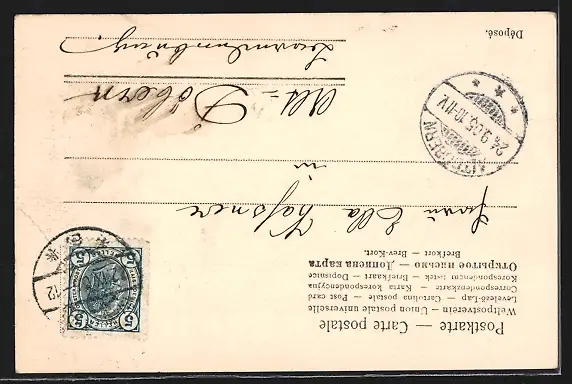 Postkarte — Carte postale
Weltpostverein — Union postale universelle
Levelező-Lap — Cartolina postale — Post card
Correspondenzkarte — Karta korespondencyjna
Korespondenční lístek — Briefkaart — Dopisnice
Открытое письмо — Дописна карта
Brefkort — Brev-Kort.
Frau Ella
in
Alt=Döbern
Déposé.
ALT DÖBERN
24.9.05.10-11V.
5 5
5 5
12